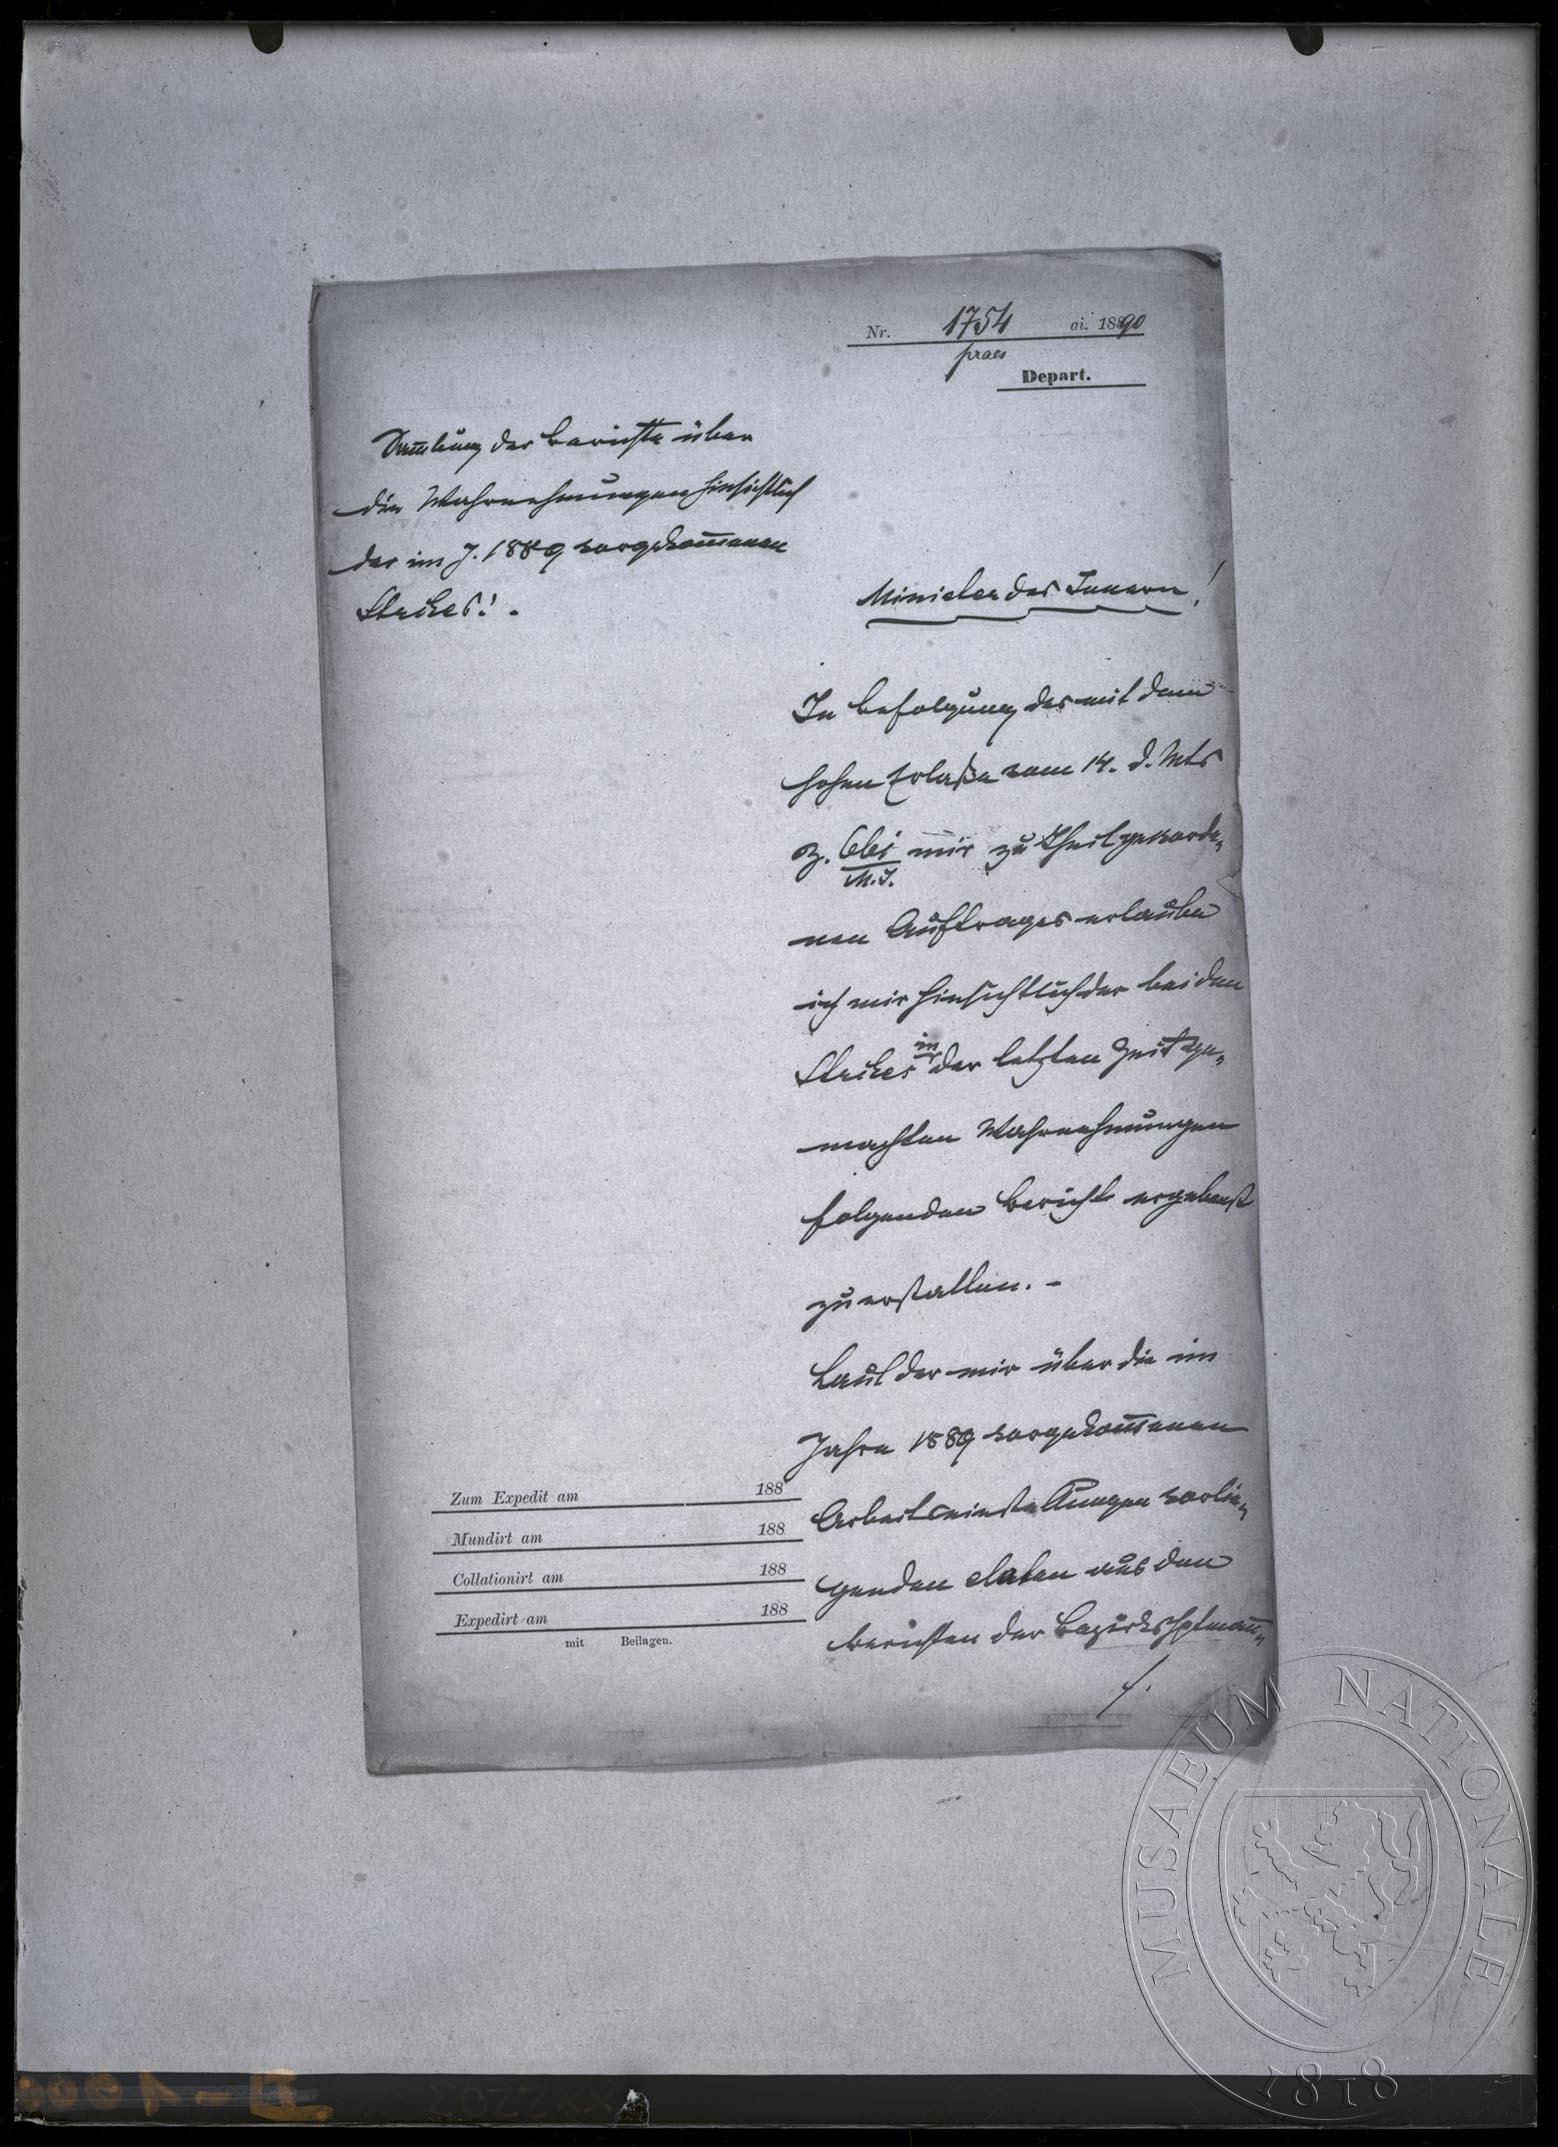 Nr. 1754 ai. 1890
praes
Depart.
Samlung der Berichte über
die Wahrnehmungen hinsichtlich
der im J. 1889 vorgekom̄enen
Strikes! -
Minister des Innern!
In Befolgung des mit dem
hohen Erlaße vom 14. d. Mts
Z. 661 mir zu Theil geworde„
M.I.
nen Auftrages erlaube
ich mir hinsichtlich der bei den
Strikes in der letzten Zeit ge„
machten Wahrnehmungen
folgenden Bericht ergebenst
zu erstatten. -
Laut der mir über die im
Jahre 1889 vorgekom̄enen
Arbeitseinstellungen vorlie„
genden Daten aus den
Berichten der Bezirkshptman̄„
./.
Zum Expedit am 188
Mundirt am 188
Collationirt am 188
Expedirt am 188
mit Beilagen.
MUSAEUM NATIONALE
1818